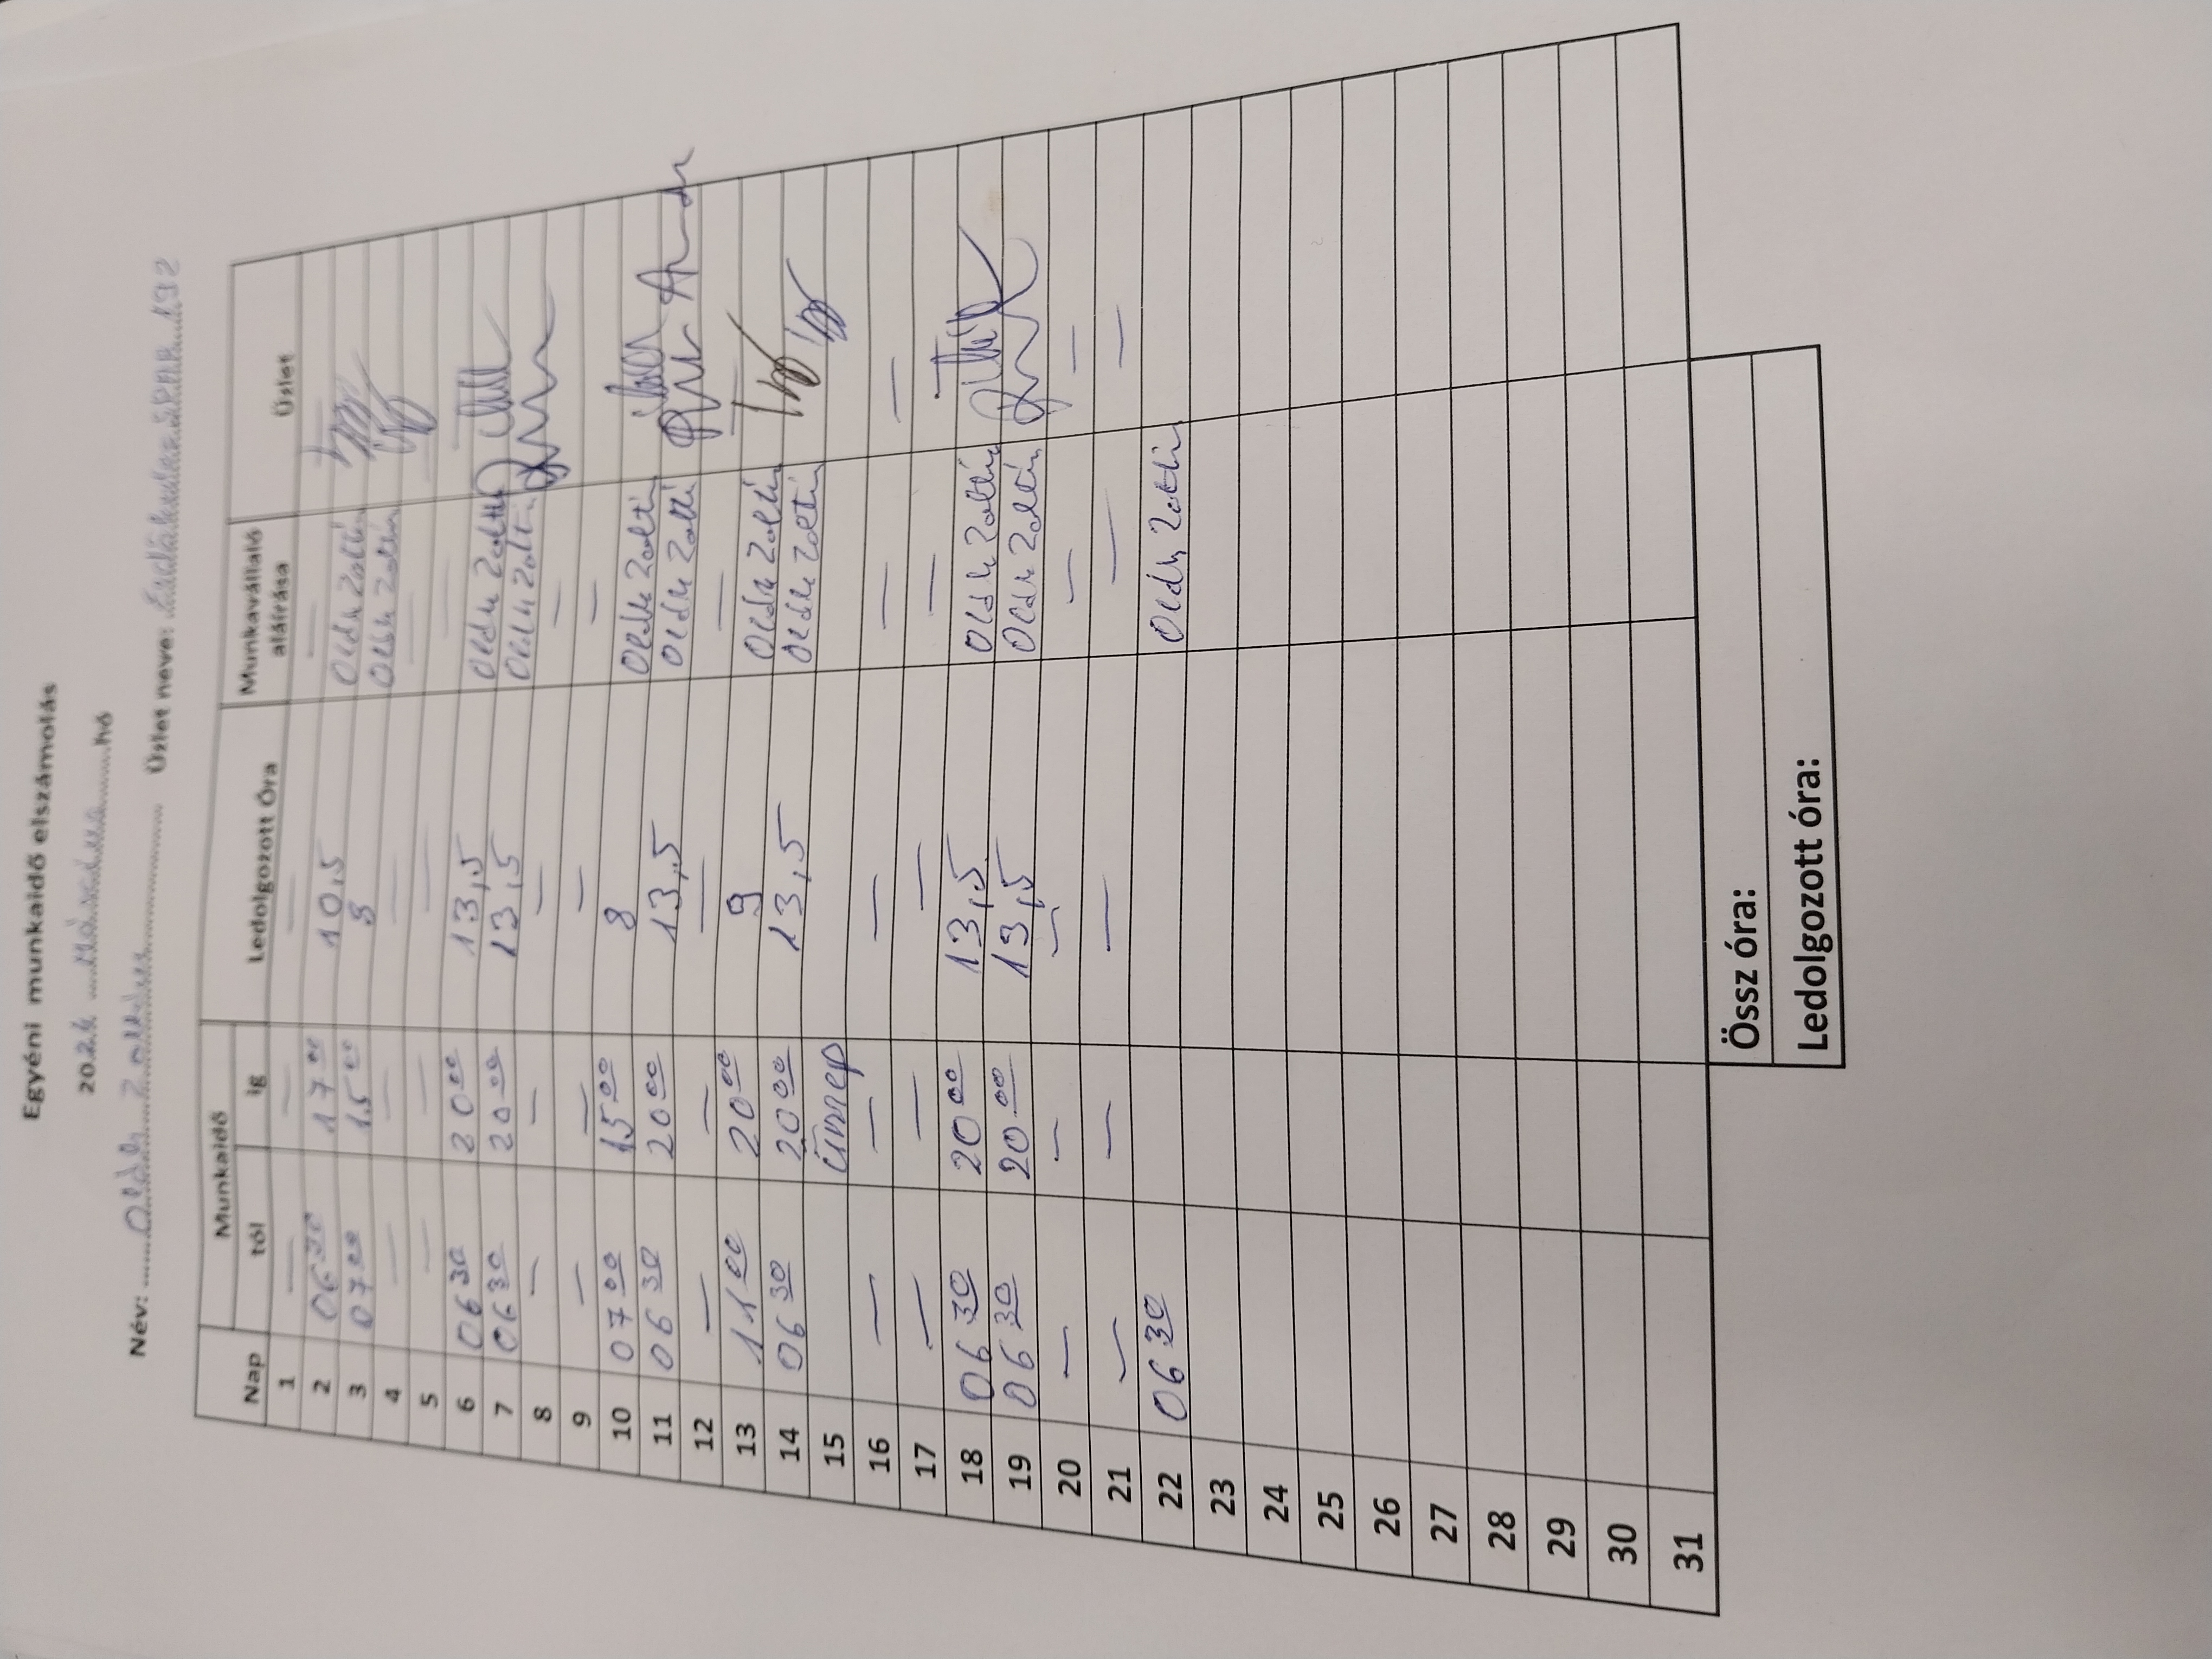 Egyéni munkaidő elszámolás
2024 Március hó
Név: Oláh Zoltán Üzlet neve: SPAR 192
Nap Munkaidő Ledolgozott Óra Munkavállaló aláírása Üzlet
tól ig
1 — — — —
2 06 30 17 00 10,5 Oláh Zoltán
3 07 00 15 00 8 Oláh Zoltán
4 — — — —
5 — — — —
6 06 30 20 00 13,5 Oláh Zoltán
7 06 30 20 00 13,5 Oláh Zoltán
8 — — — —
9 — — — —
10 07 00 15 00 8 Oláh Zoltán
11 06 30 20 00 13,5 Oláh Zoltán
12 — — — — —
13 11 00 20 00 9 Oláh Zoltán
14 06 30 20 00 13,5 Oláh Zoltán
15 Ünnep
16 — — — — —
17 — — — — —
18 06 30 20 00 13,5 Oláh Zoltán
19 06 30 20 00 13,5 Oláh Zoltán
20 — — — — —
21 — — — — —
22 06 30 Oláh Zoltán
23
24
25
26
27
28
29
30
31
Össz óra:
Ledolgozott óra: